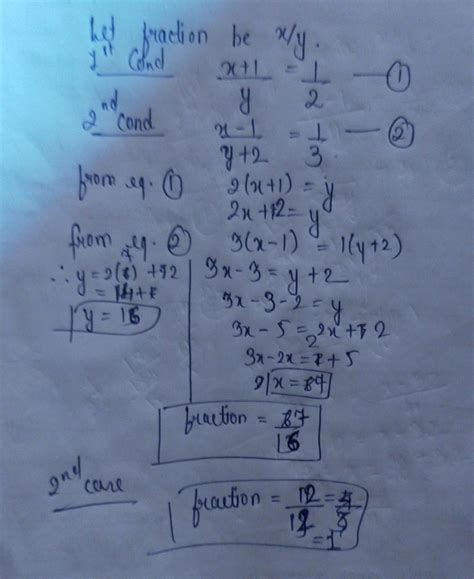 Let fraction be x/y.
1st Cond (x+1)/y = 1/2 — ①
2nd Cond (x-1)/(y+2) = 1/3 — ②
from eq. ① 2(x+1) = y
2x+2 = y
from eq. ② 3(x-1) = 1(y+2)
3x-3 = y+2
3x-3-2 = y
3x-5 = 2x+2
3x-2x = 2+5
x = 7
∴ y = 2(7)+2
= 14+2
y = 16
fraction = 7/16
2nd case
fraction = 12/12
= 1